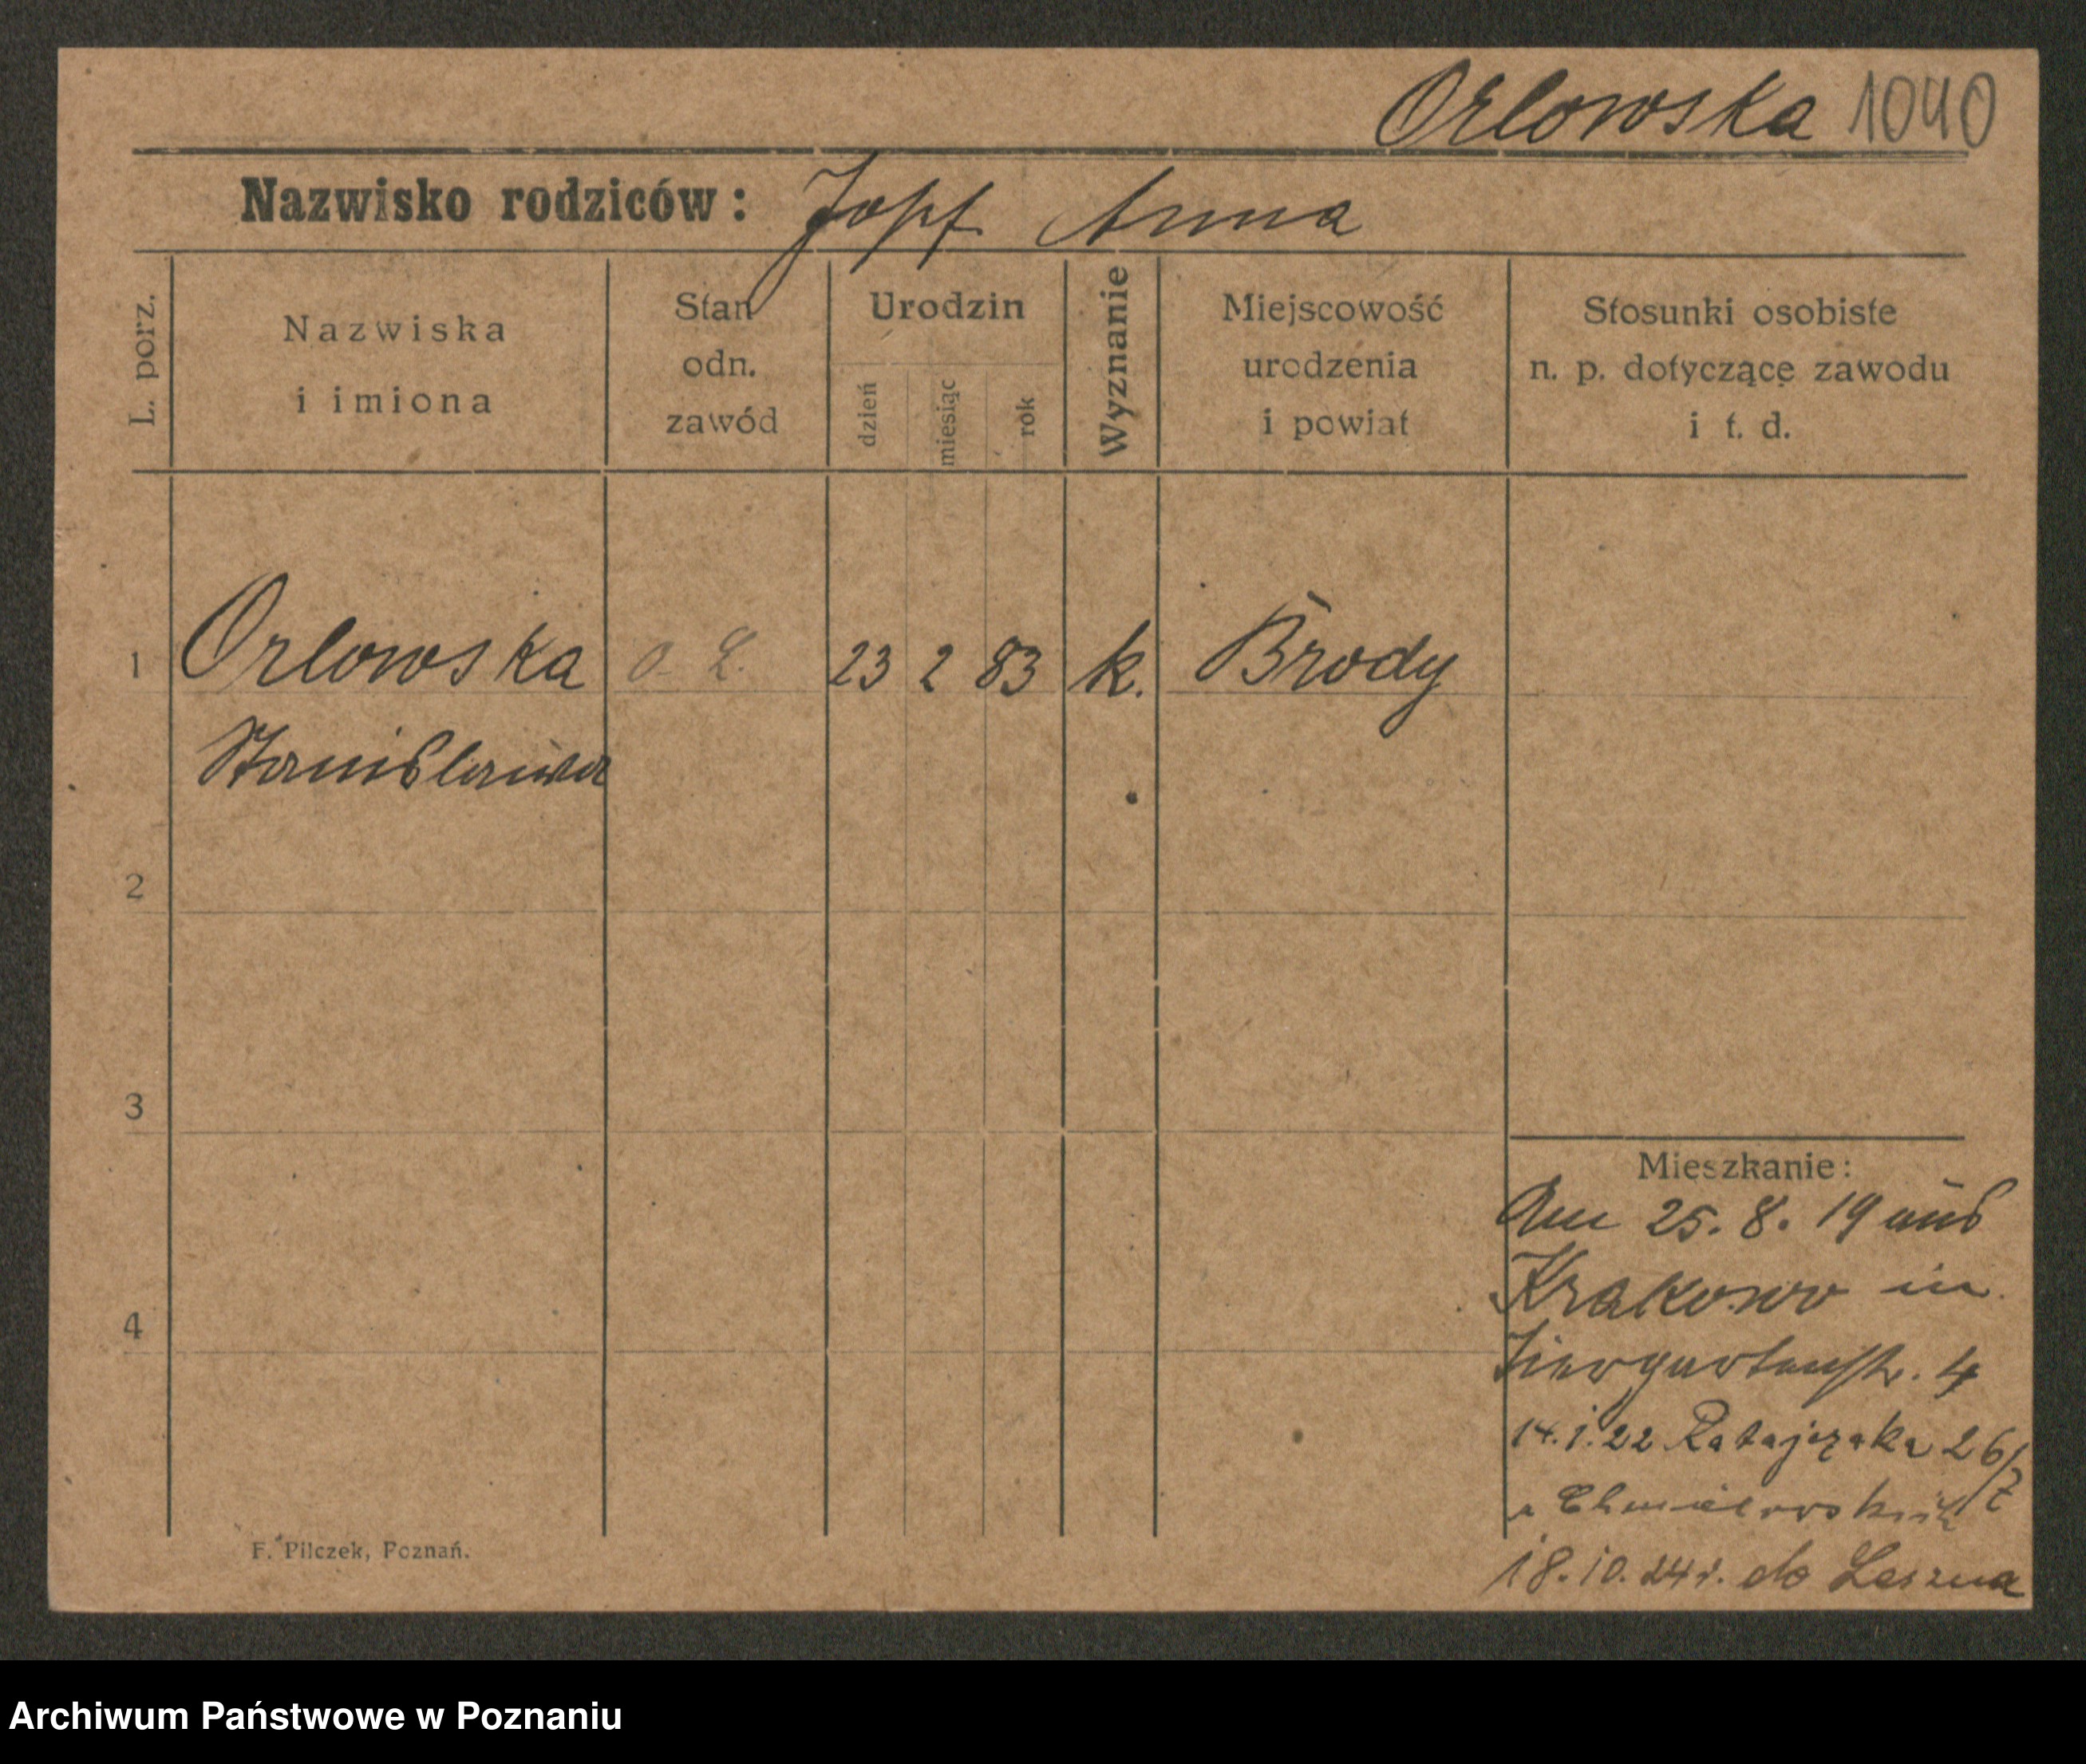 Orlowska 1040
Nazwisko rodziców: Jopf Anna
L. porz.
Nazwiska
i imiona
Stan
odn.
zawód
Urodzin
dzień
miesiąc
rok
Wyznanie
Miejscowość
urodzenia
i powiat
Stosunki osobiste
n. p. dotyczącę zawodu
i t. d.
1 Orlowska o. L. 23 2 83 k. Brody
Stanislawa
2
3
4
Mieszkanie:
Am 25. 8. 19 aus
Krakowo in
Tiergartenstr. 4
14.1.22 Ratajczaka 26/7
u Chmielewskich
18.10.24 r. do Leszna
F. Pilczek, Poznań.
Archiwum Państwowe w Poznaniu